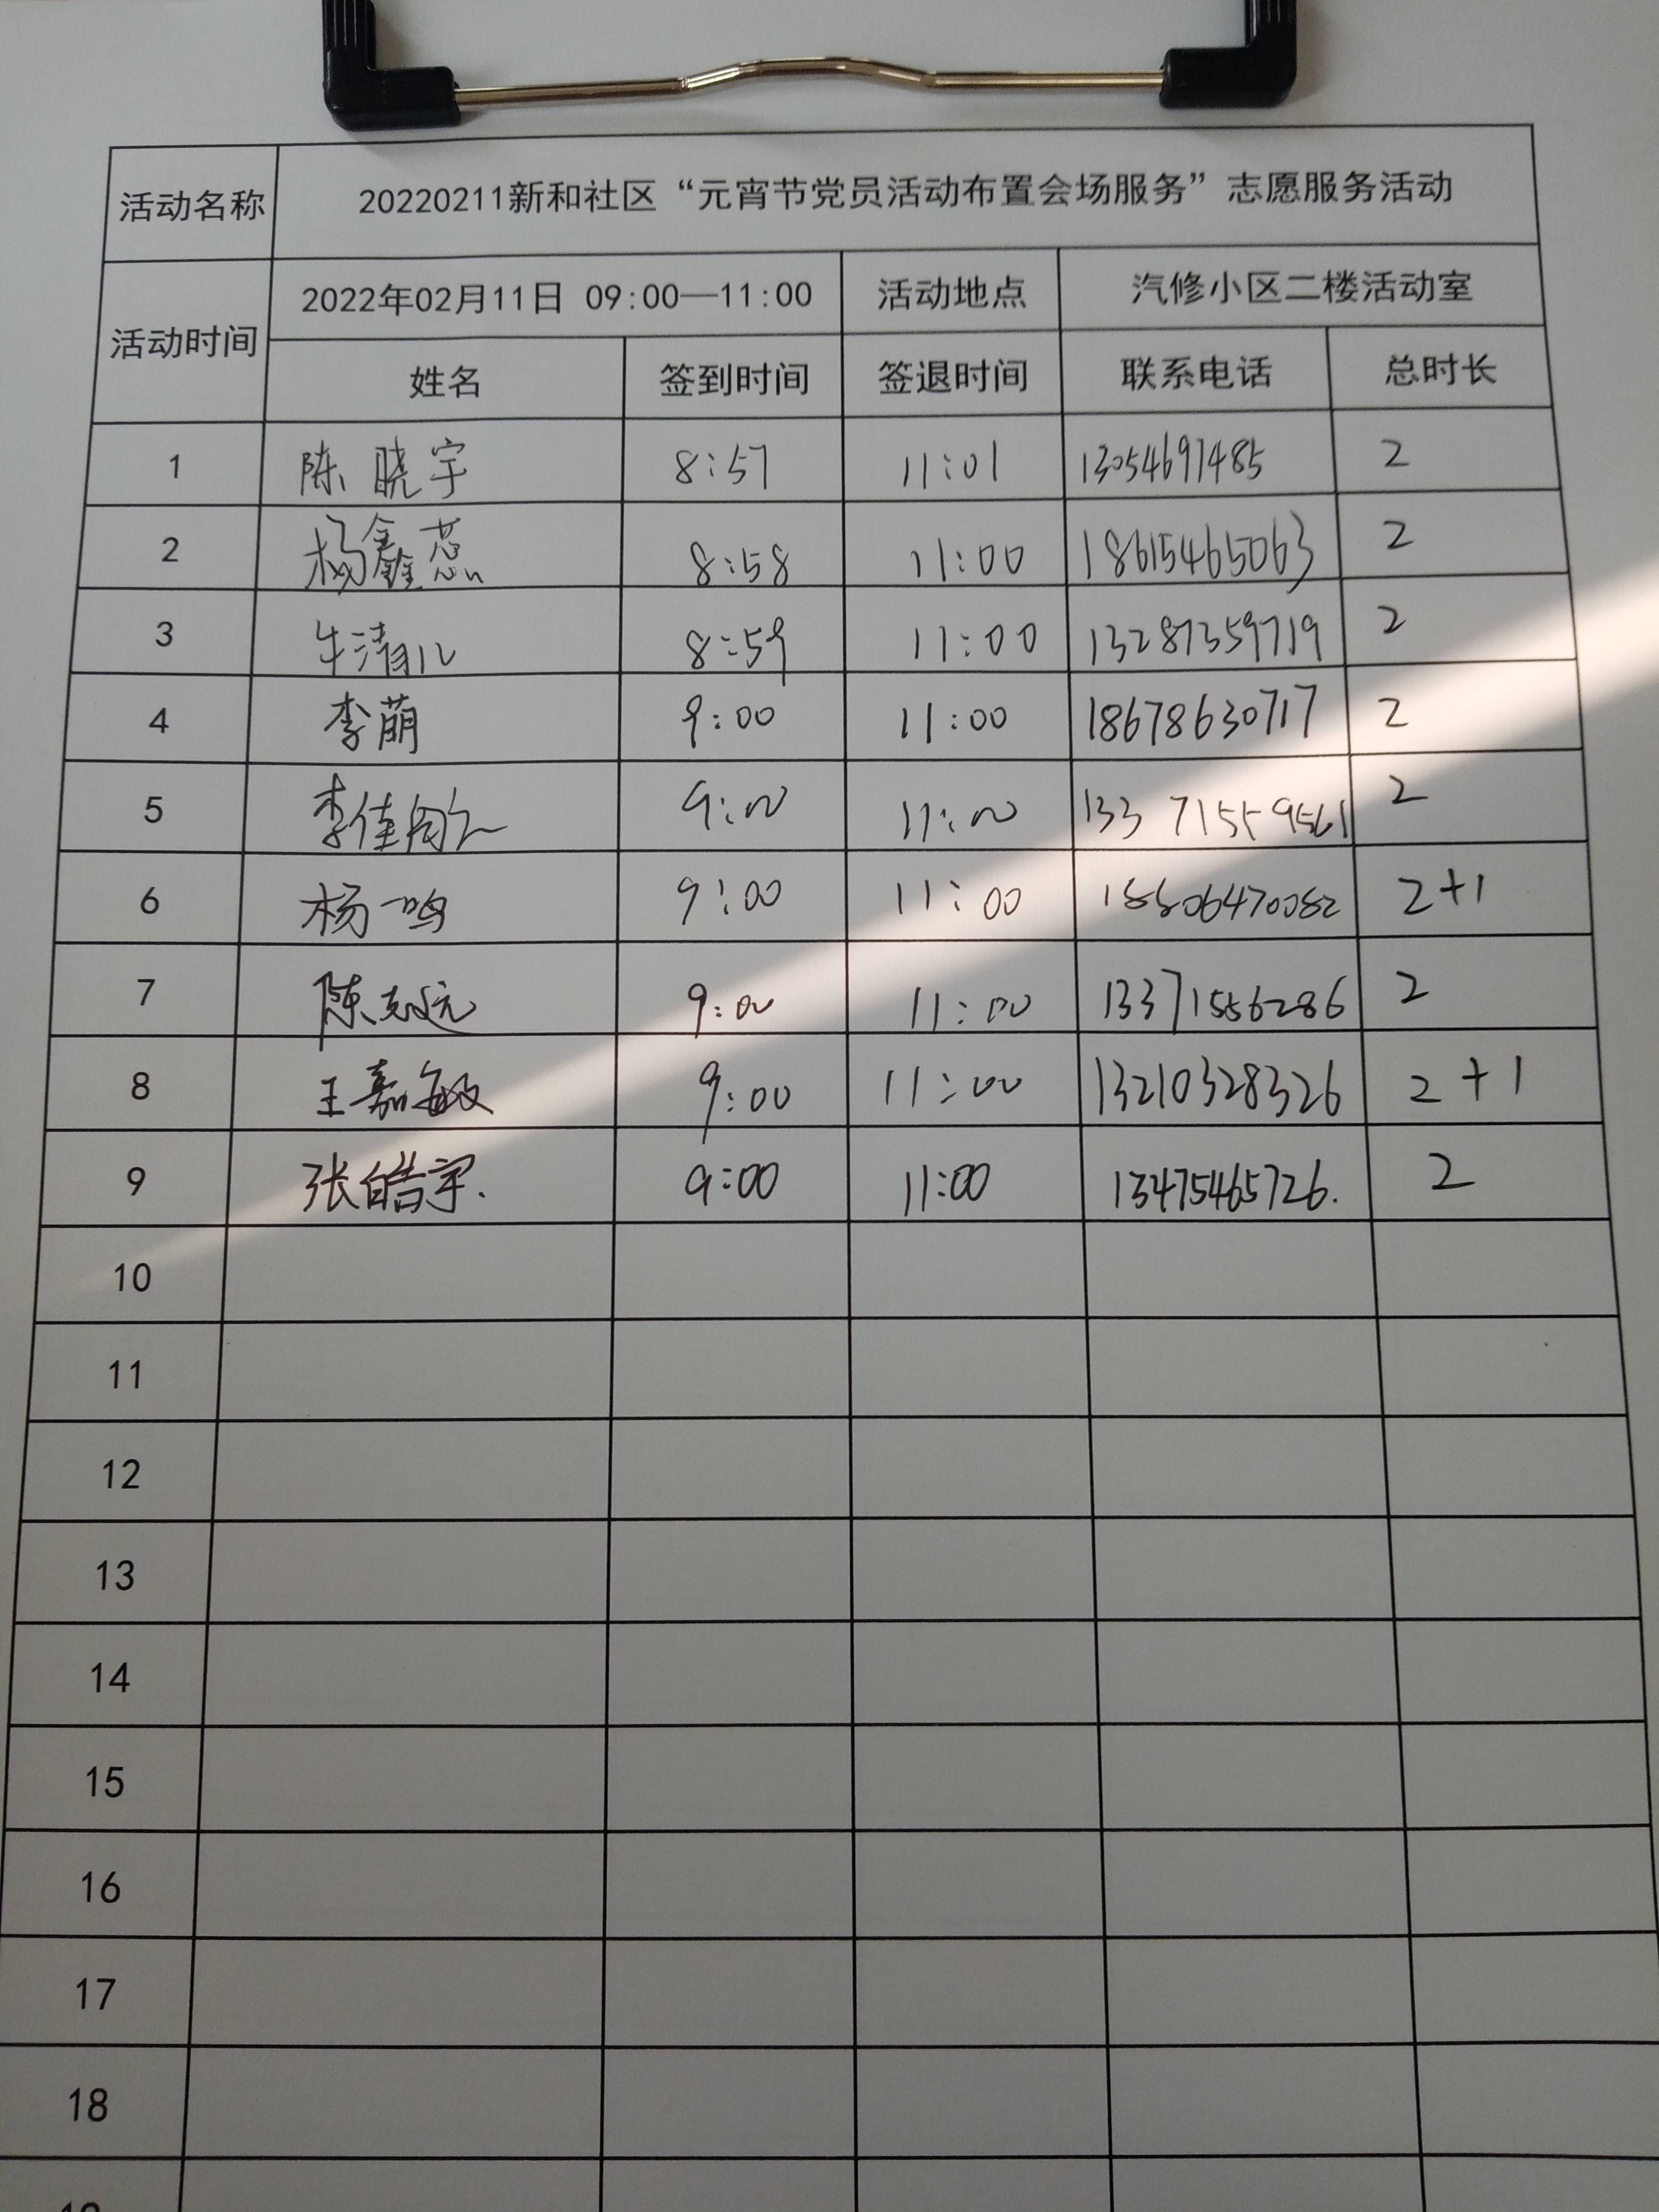 活动名称 20220211新和社区“元宵节党员活动布置会场服务”志愿服务活动
活动时间 2022年02月11日 09:00—11:00 活动地点 汽修小区二楼活动室
姓名 签到时间 签退时间 联系电话 总时长
1 陈晓宇 8:57 11:01 13054691485 2
2 杨鑫蕊 8:58 11:00 18615465063 2
3 牛清儿 8:59 11:00 13287359719 2
4 李萌 9:00 11:00 18678630717 2
5 李佳 9:00 11:00 2
6 杨一鸣 9:00 11:00 2+1
7 陈志远 9:00 11:00 13371556286 2
8 王嘉敏 9:00 11:00 13210328326 2+1
9 张皓宇. 9:00 11:00 13475465726. 2
10
11
12
13
14
15
16
17
18